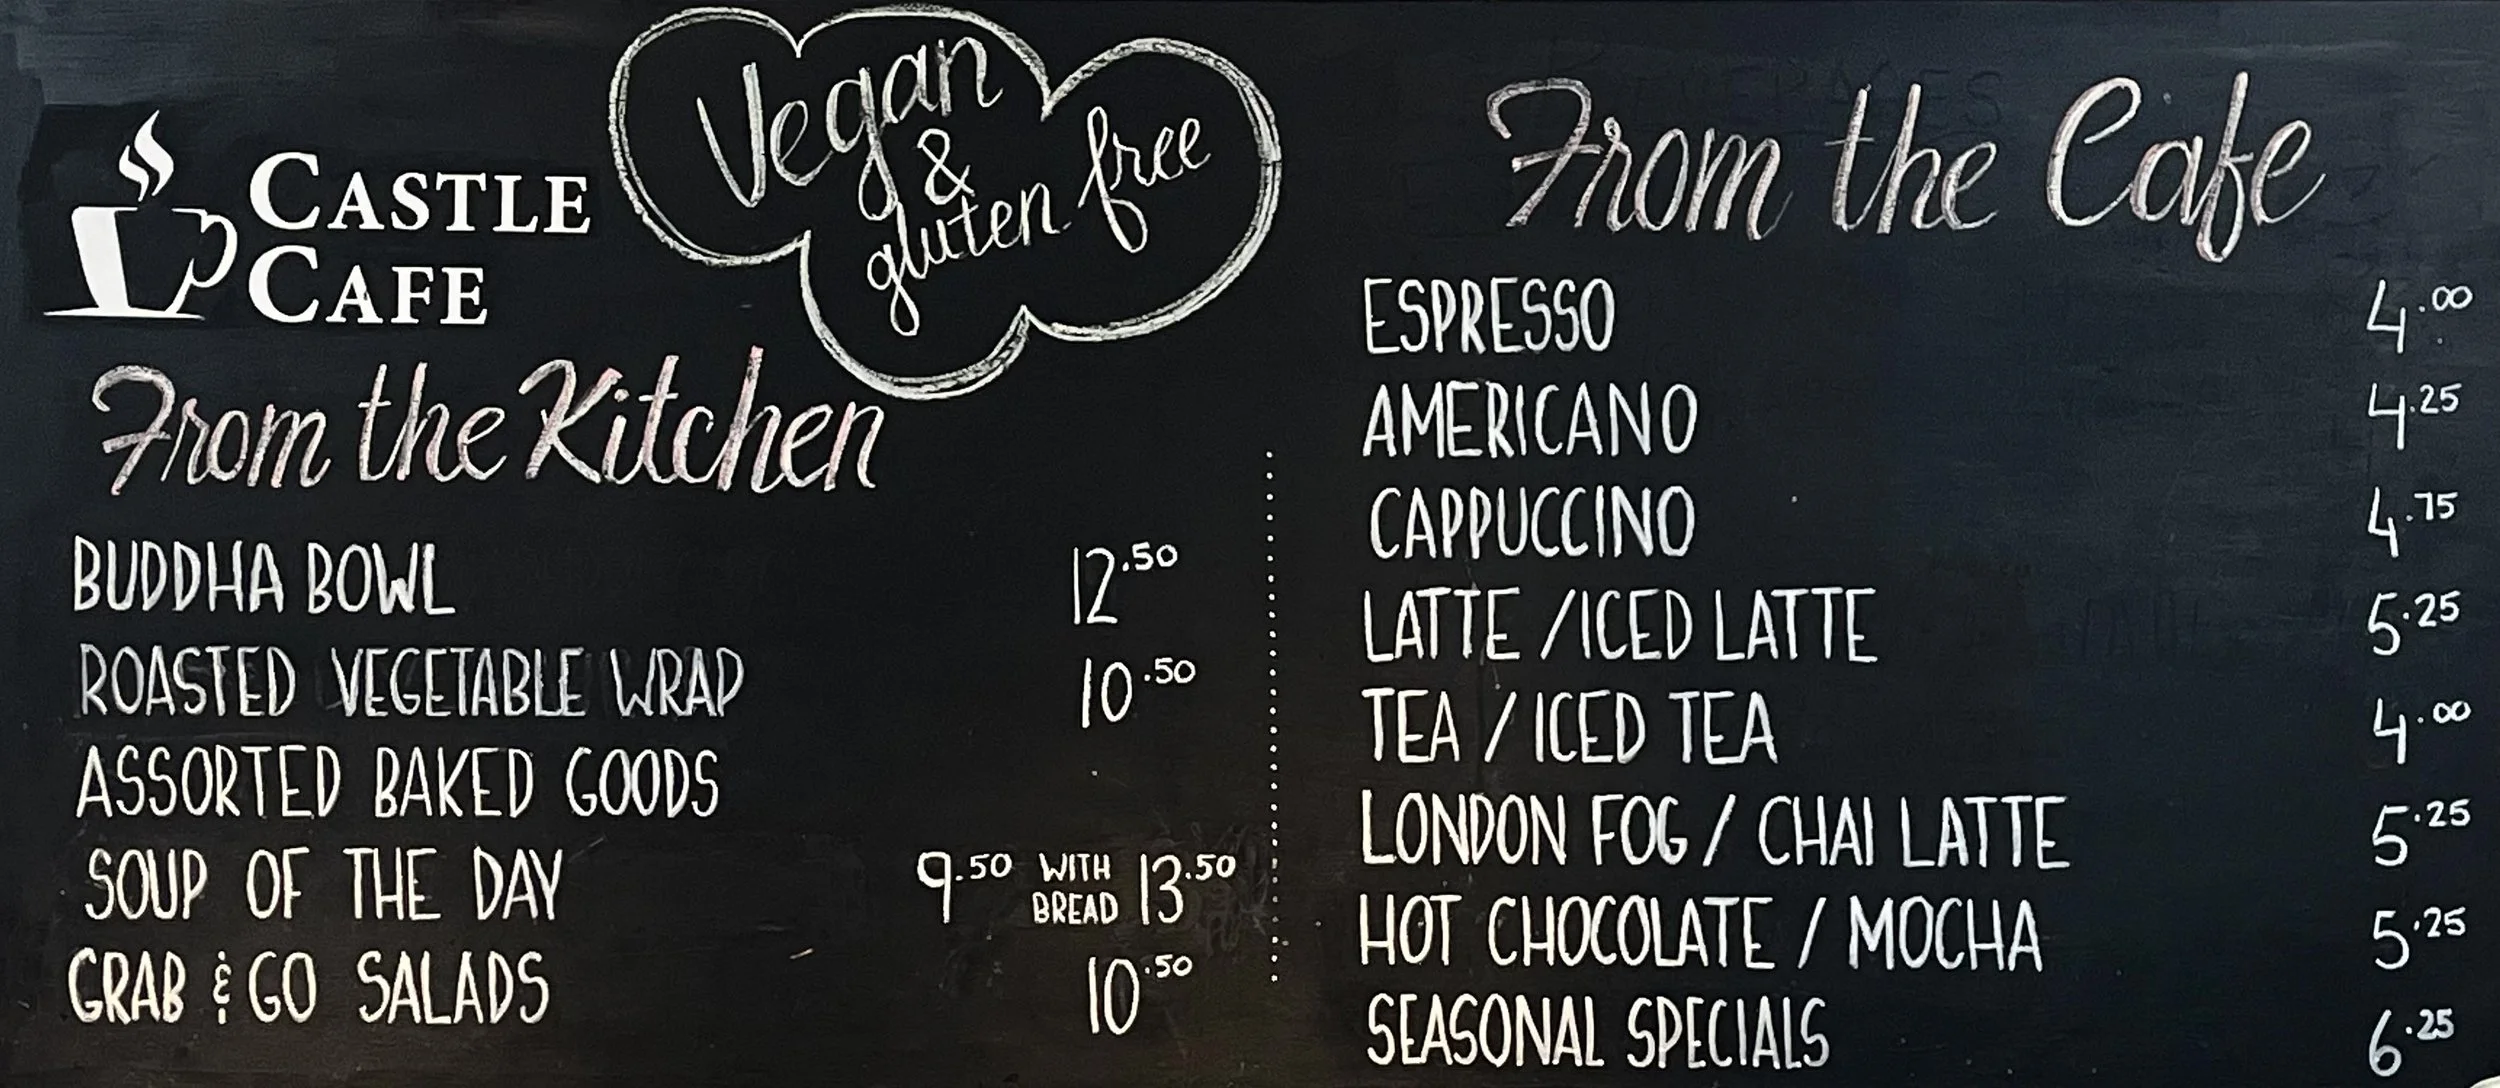 CASTLE
CAFE
Vegan
&
gluten free
From the Kitchen
BUDDHA BOWL 12.50
ROASTED VEGETABLE WRAP 10.50
ASSORTED BAKED GOODS
SOUP OF THE DAY 9.50 WITH BREAD 13.50
GRAB & GO SALADS 10.50
From the Cafe
ESPRESSO 4.00
AMERICANO 4.25
CAPPUCCINO 4.75
LATTE /ICED LATTE 5.25
TEA / ICED TEA 4.00
LONDON FOG / CHAI LATTE 5.25
HOT CHOCOLATE / MOCHA 5.25
SEASONAL SPECIALS 6.25